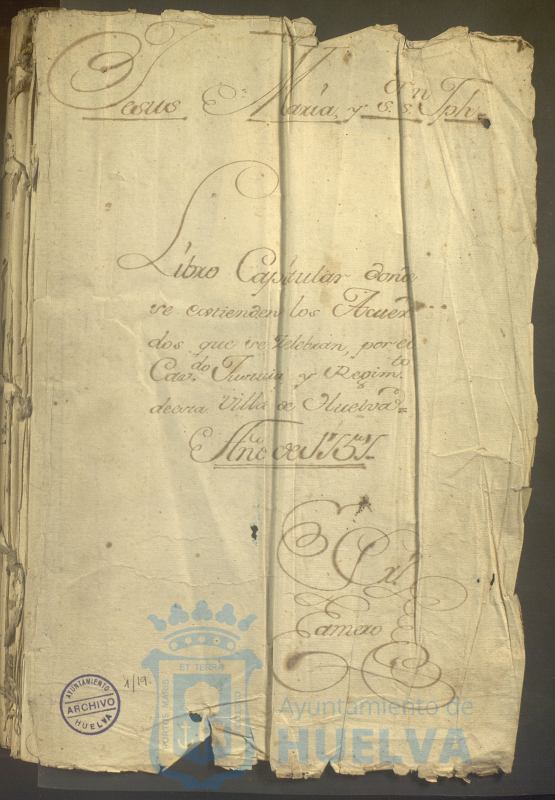 Jesus Maria, y Sn. Jph.
Libro Capitular donde
se estienden los Acuer
dos que se zelebran, por el
Cavdo. Justicia y Regimto.
de esta Villa de Huelva=
Año de 1751
Enero
AYUNTAMIENTO
ARCHIVO
HUELVA
1/19.
ET TERRA
PORTUS MARIS
Ayuntamiento de
HUELVA